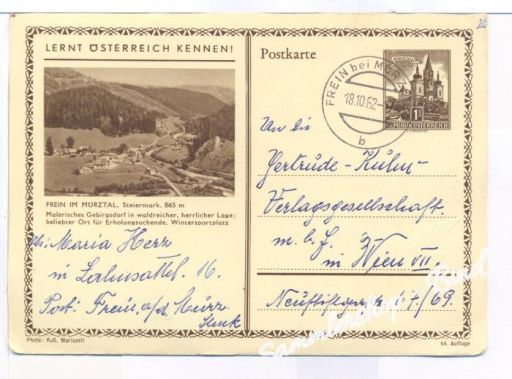 20
LERNT ÖSTERREICH KENNEN!
Postkarte
FREIN bei MÜRZ
18.10.62
b
REPUBLIK ÖSTERREICH
FREIN IM MÜRZTAL, Steiermark, 865 m
Malerisches Gebirgsdorf in waldreicher, herrlicher Lage;
beliebter Ort für Erholungsuchende, Wintersportplatz
Maria Herz
in Lahnsattel. 16.
Post: Frein, a/d. Mürz
An die
Gertrude-Kühn-
Verlagsgesellschaft.
m. b. H.
in Wien VII.
67/69.
Photo: Kuß, Mariazell
64. Auflage